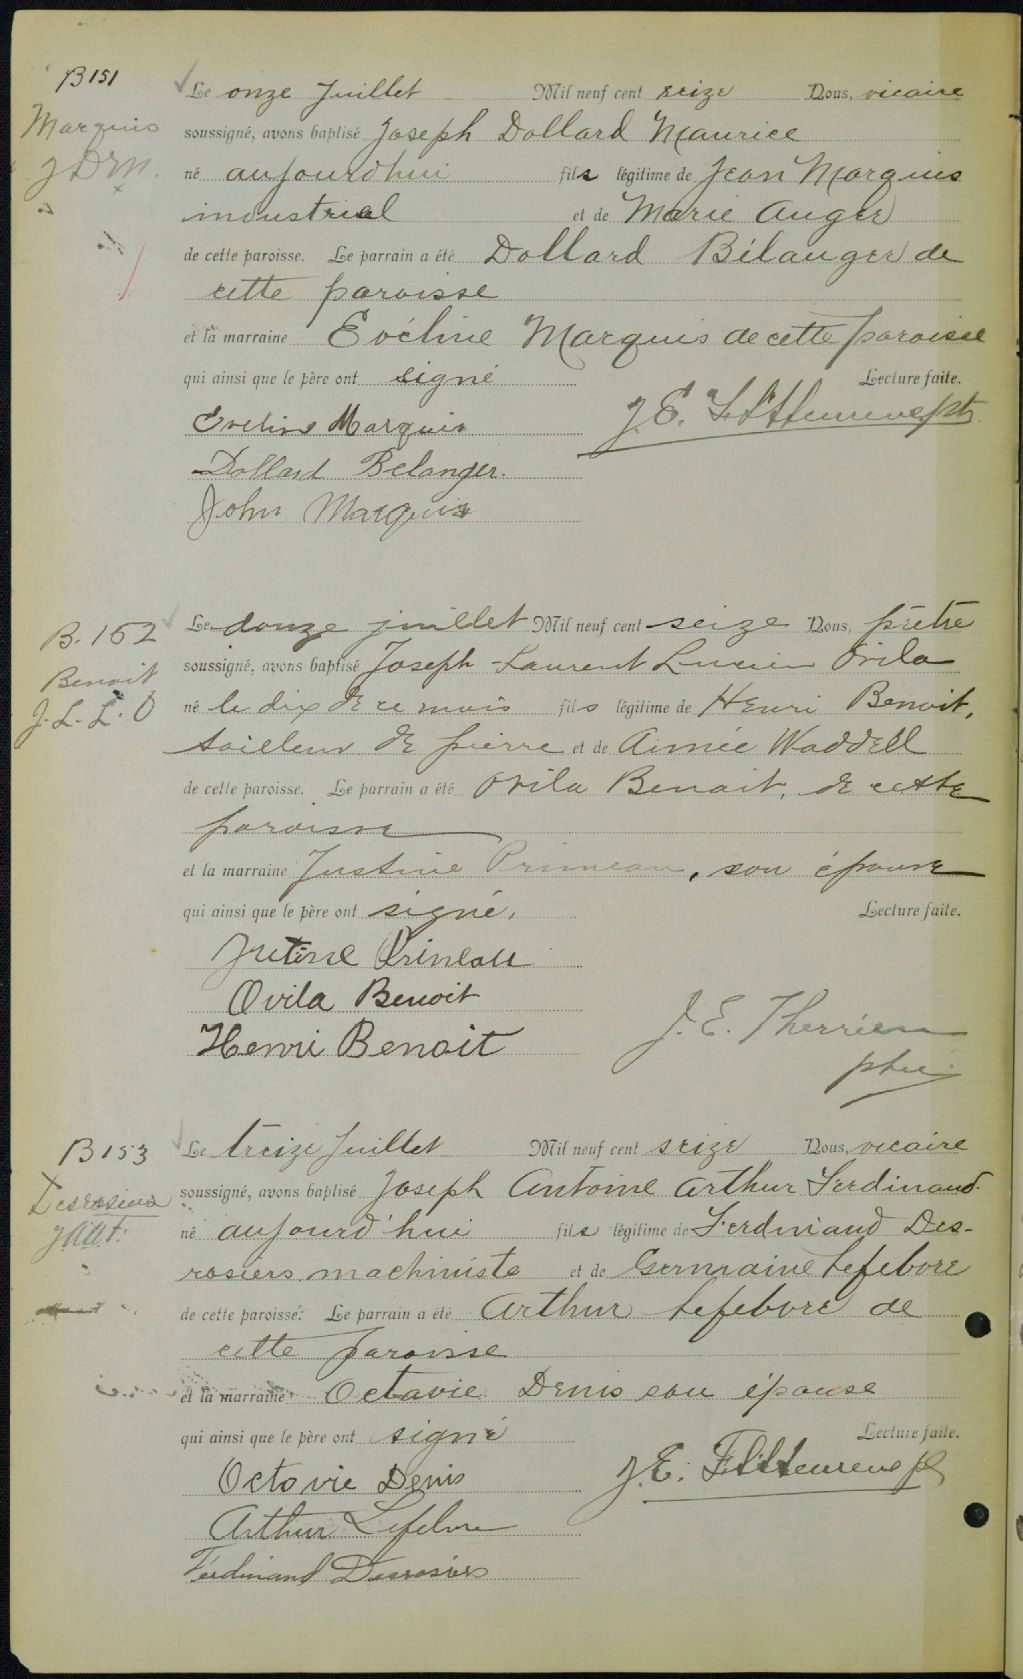 B 151
Marquis
J D M.
Le onze Juillet Mil neuf cent seize Nous, vicaire
soussigné, avons baptisé Joseph Dollard Maurice
né aujourd'hui fils légitime de Jean Marquis
industriel et de Marie Auger
de cette paroisse. Le parrain a été Dollard Bélanger de
cette paroisse
et la marraine Evéline Marquis de cette paroisse
qui ainsi que le père ont signé Lecture faite.
Eveline Marquis J. E.
Dollard Belanger.
John Marquis
B. 152
Benoit
J. L. L. O
Le douze juillet Mil neuf cent seize Nous, prêtre
soussigné, avons baptisé Joseph Laurent Lucien Ovila
né le dix de ce mois fils légitime de Henri Benoit,
tailleur de pierre et de Aimée Waddell
de cette paroisse. Le parrain a été Ovila Benoit, de cette
paroisse
et la marraine Justine Primeau, son épouse
qui ainsi que le père ont signé, Lecture faite.
Primeau
Ovila Benoit
Henri Benoit J. E. Therrien
ptre
B 153
Desrosiers
J A A F.
Le treize Juillet Mil neuf cent seize Nous, vicaire
soussigné, avons baptisé Joseph Antoine Arthur Ferdinand
né aujourd'hui fils légitime de Ferdinand Des-
rosiers machiniste et de Germaine Lefebvre
de cette paroisse. Le parrain a été Arthur Lefebvre de
cette paroisse
et la marraine Octavie Denis son épouse
qui ainsi que le père ont signé Lecture faite.
Octavie Denis J. E.
Arthur Lefebvre
Ferdinand Desrosiers